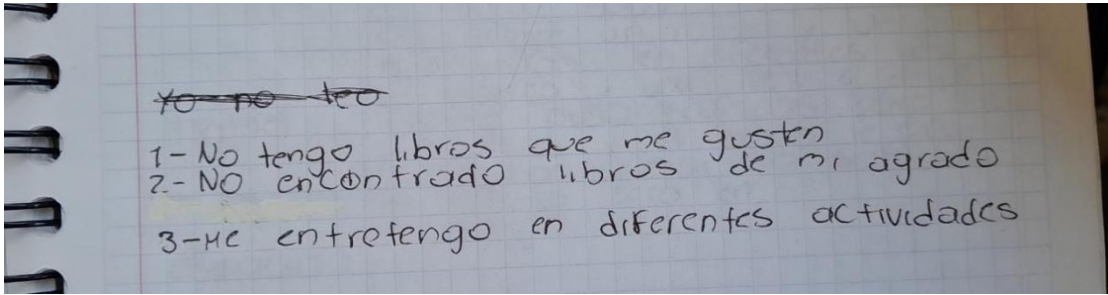 Yo no leo
1- No tengo libros que me gusten
2.- NO encontrado libros de mi agrado
3-Me entretengo en diferentes actividades